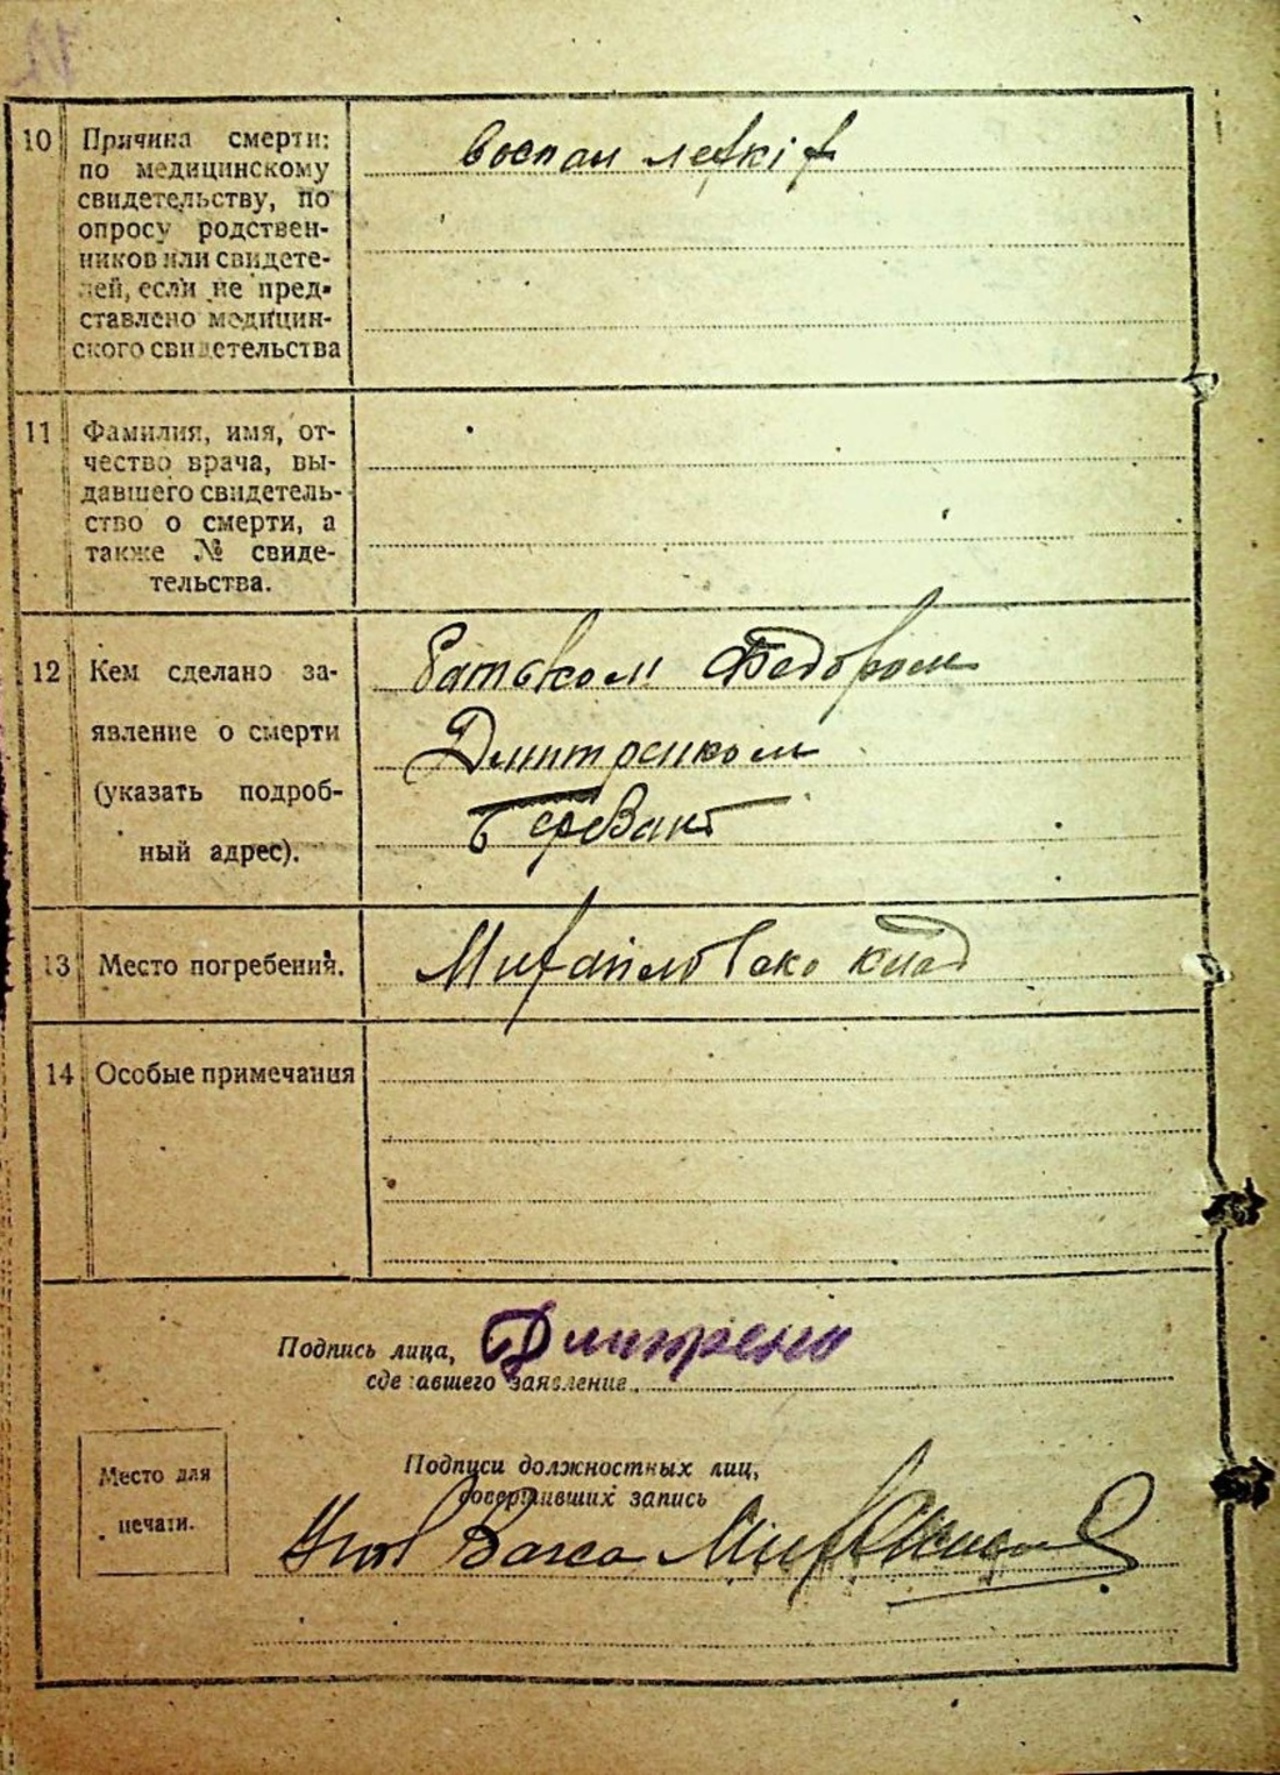 10 Причина смерти:
по медицинскому
свидетельству, по
опросу родствен-
ников или свидете-
лей, если не пред-
ставлено медицин-
ского свидетельства
воспал легкіх
11 Фамилия, имя, от-
чество врача, вы-
давшего свидетель-
ство о смерти, а
также № свиде-
тельства.
12 Кем сделано за-
явление о смерти
(указать подроб-
ный адрес).
батьком Федором
Дмитренком
13 Место погребения.
Михайловско клад
14 Особые примечания
Подпись лица, Дмитренко
сделавшего заявление
Место для
печати.
Подписи должностных лиц,
совершивших запись